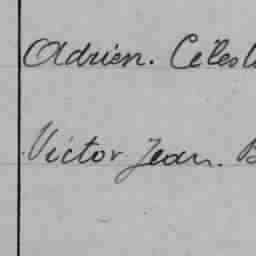 Adrien. Céles
Victor Jean. B